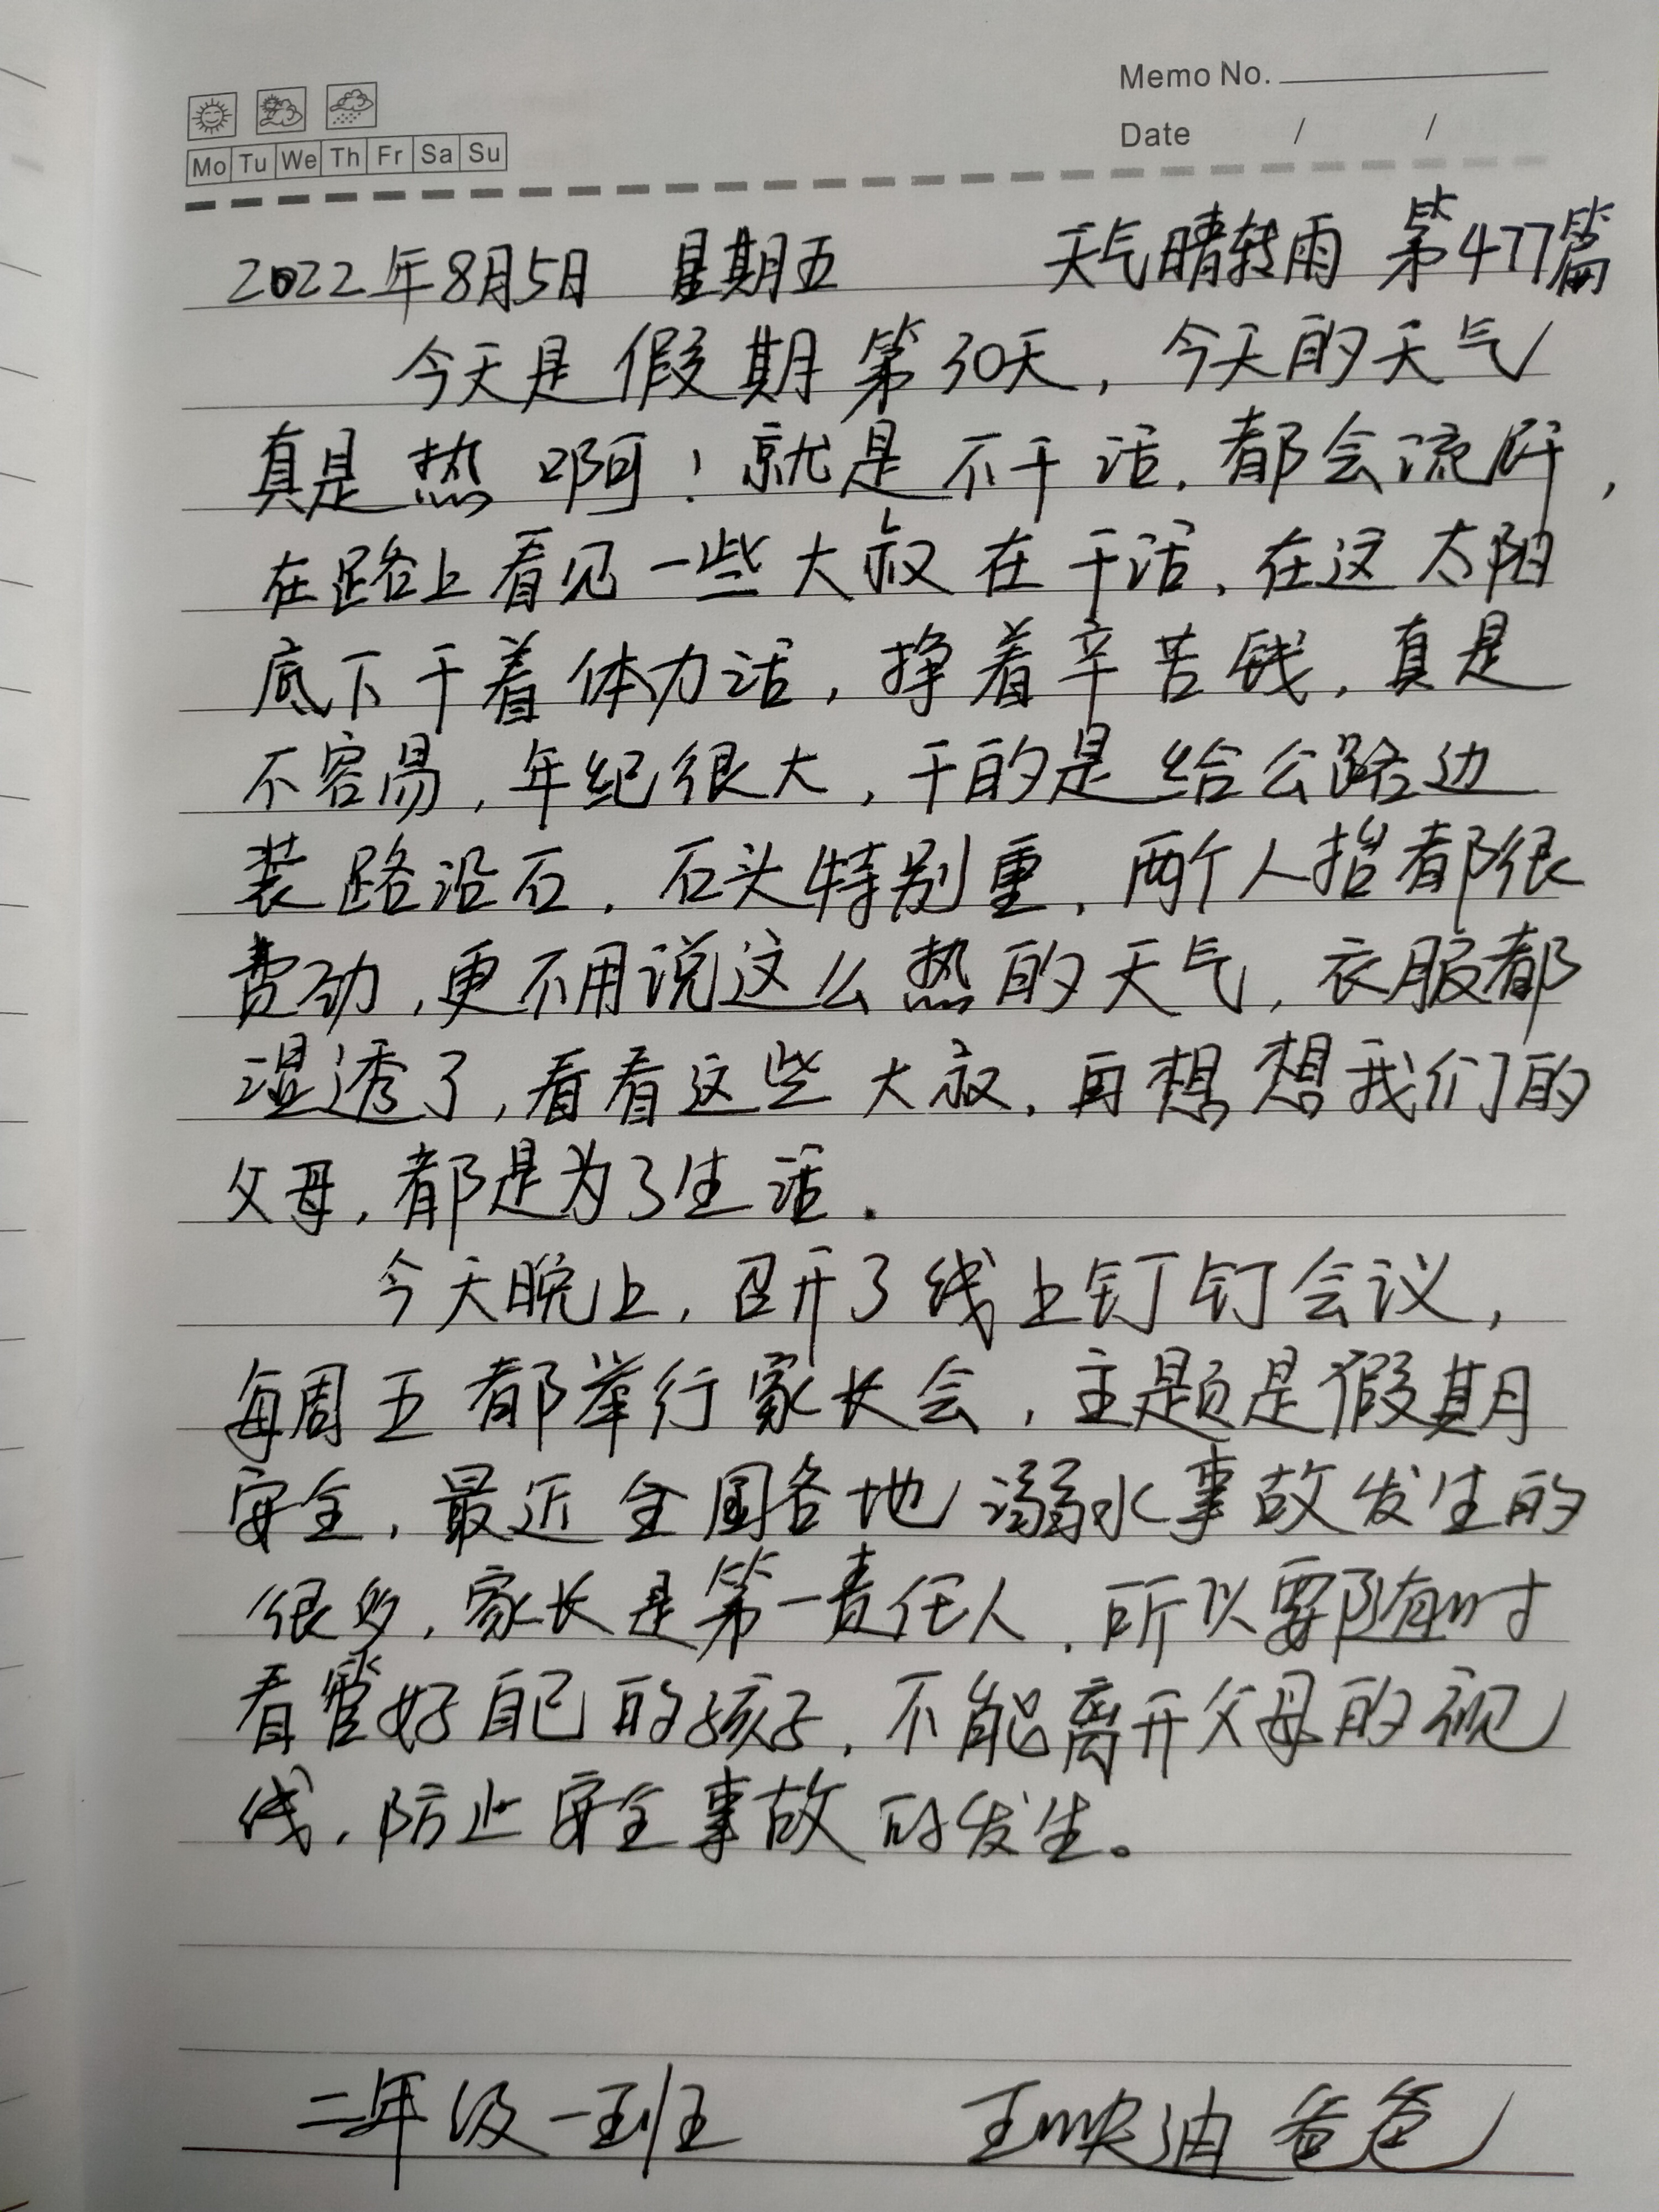 Memo No.
Mo Tu We Th Fr Sa Su
Date / /
2022年8月5日 星期五 天气晴转雨 第477篇
今天是假期第30天，今天的天气
真是热啊！就是不干活，都会流汗，
在路上看见一些大叔在干活，在这太阳
底下干着体力活，挣着辛苦钱，真是
不容易，年纪很大，干的是给公路边
装路沿石，石头特别重，两个人抬都很
费劲，更不用说这么热的天气，衣服都
湿透了，看看这些大叔，再想想我们的
父母，都是为了生活.
今天晚上，召开了线上钉钉会议，
每周五都举行家长会，主题是假期
安全，最近全国各地溺水事故发生的
很多，家长是第一责任人，所以要随时
看管好自己的孩子，不能离开父母的视
线，防止安全事故的发生。
二年级一班 王映迪爸爸